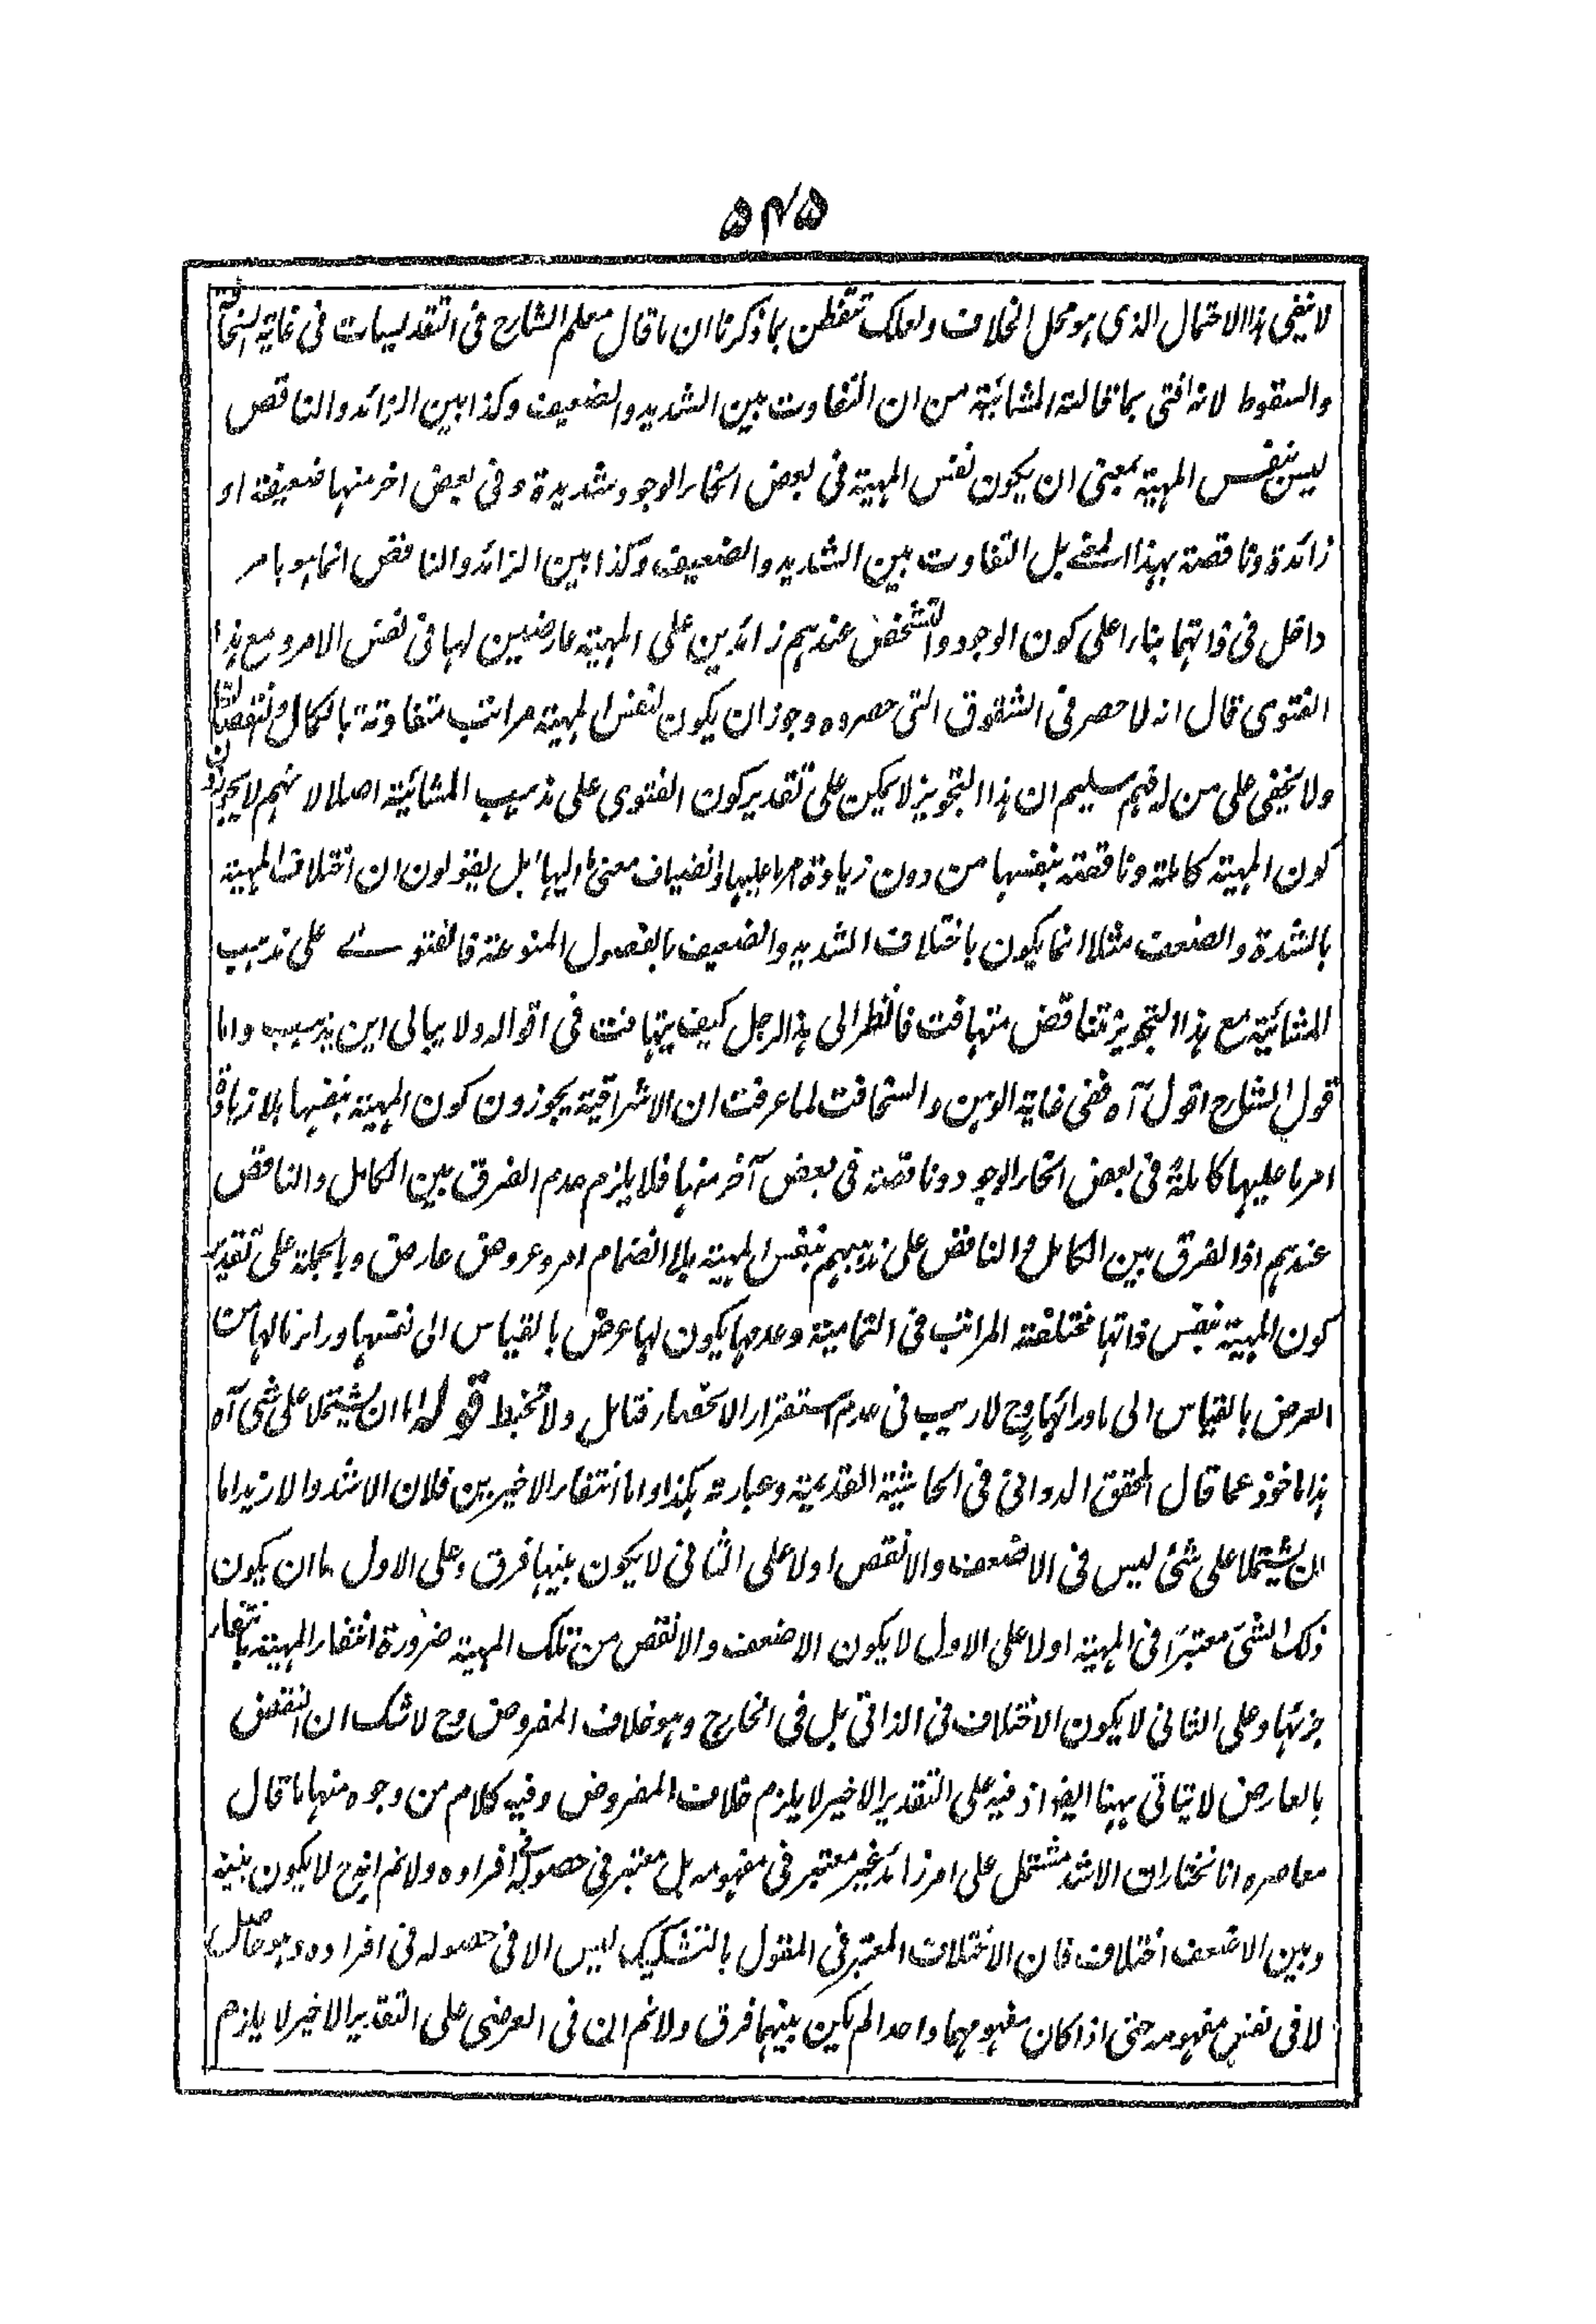 ۵۴۵
لا ينفى هذا الاحتمال الذى هو محل الخلاف ولعلك تتفطن بما ذكرنا ان ما قال معلم الشارح فى التقديسات فى غاية السخافة
والسقوط لانه افتى بما قالته المشائية من ان التفاوت بين الشديد والضعيف وكذا بين الزائد والناقص
ليس بنفس المهية بمعنى ان يكون نفس المهية فى بعض انحاء الوجود شديدة وفى بعض اخر منها ضعيفة او
زائدة وناقصة بهذا المعنے بل التفاوت بين الشديد والضعيف وكذا بين الزائد والناقص انما هو بامر
داخل فى ذاتهما بناء اعلى كون الوجود والتشخص عندهم زائدين على المهية عارضين لها فى نفس الامر ومع هذا
الفتوى قال انه لا حصر فى الشقوق التى حصروه وجوز ان يكون لنفس المهية مراتب متفاوتة بالكمال والنقصان
ولا يخفى على من له فهم سليم ان هذا التجويز لا يمكن على تقدير كون الفتوى على مذهب المشائية اصلا لانهم لا يجوزون
كون المهية كاملة وناقصة بنفسها من دون زيادة امر ما عليها وانضياف معنى اليها بل يقولون ان اختلاف المهية
بالشدة والضعف مثلا انما يكون باختلاف الشديد والضعيف بالفصول المنوعة فالفتوے على مذهب
المشائية مع هذا التجويز تناقض متهافت فانظر الى هذا الرجل كيف يتهافت فى اقواله ولا يبالى اين يذهب واما
قول الشارح اقول آه ففى غاية الوهن والسخافت لما عرفت ان الاشراقية يجوزون كون المهية بنفسها بلا زيادة
امر ما عليها كاملة فى بعض انحاء الوجود وناقصة فى بعض آخر منها فلا يلزم عدم الفرق بين الكامل والناقص
عندهم اذ الفرق بين الكامل والناقص على مذهبهم بنفس المهية بلا انضمام امر وعروض عارض وبالجملة على تقدير
كون المهية بنفس ذاتها مختلفة المراتب فى التمامية وعدمها يكون لها عرض بالقياس الى نفسها وراء ما لها من
العرض بالقياس الى ما ورائها وح لا ريب فى عدم استقرار الانحصار فتامل ولا تخبط قوله اما ان يشتملا على شى آه
هذا ماخوذ عما قال المحقق الدوانى فى الحاشية القديمة وعبارته هكذا واما انتفاء الاخيرين فلان الاشد والازيد اما
ان يشتملا على شئ ليس فى الاضعف والانقص او لا على الثانى لا يكون بينهما فرق وعلى الاول اما ان يكون
ذلك الشئ معتبرا فى المهية او لا على الاول لا يكون الاضعف والانقص من تلك المهية ضرورة انتفاء المهية بانتفاء
جزئها وعلى الثانى لا يكون الاختلاف فى الذاتى بل فى الخارج وهو خلاف المفروض وح لا شك ان النقض
بالعارض لا يتاتى ههنا ايضا اذ فيه على التقدير الاخير لا يلزم خلاف المفروض وفيه كلام من وجوه منها ما قال
معاصره انا نختار ان الاشد مشتمل على امر زائد غير معتبر فى مفهومه بل معتبر فى حصوله فى افراده ولا نم انه ح لا يكون بينه
وبين الاضعف اختلاف فان الاختلاف المعتبر فى المقول بالتشكيك ليس الا فى حصوله فى افراده وهو حاصل
لا فى نفس مفهومه حتى اذا كان مفهومهما واحدا لم يكن بينهما فرق ولا نم ان فى العرضى على التقدير الاخير لا يلزم